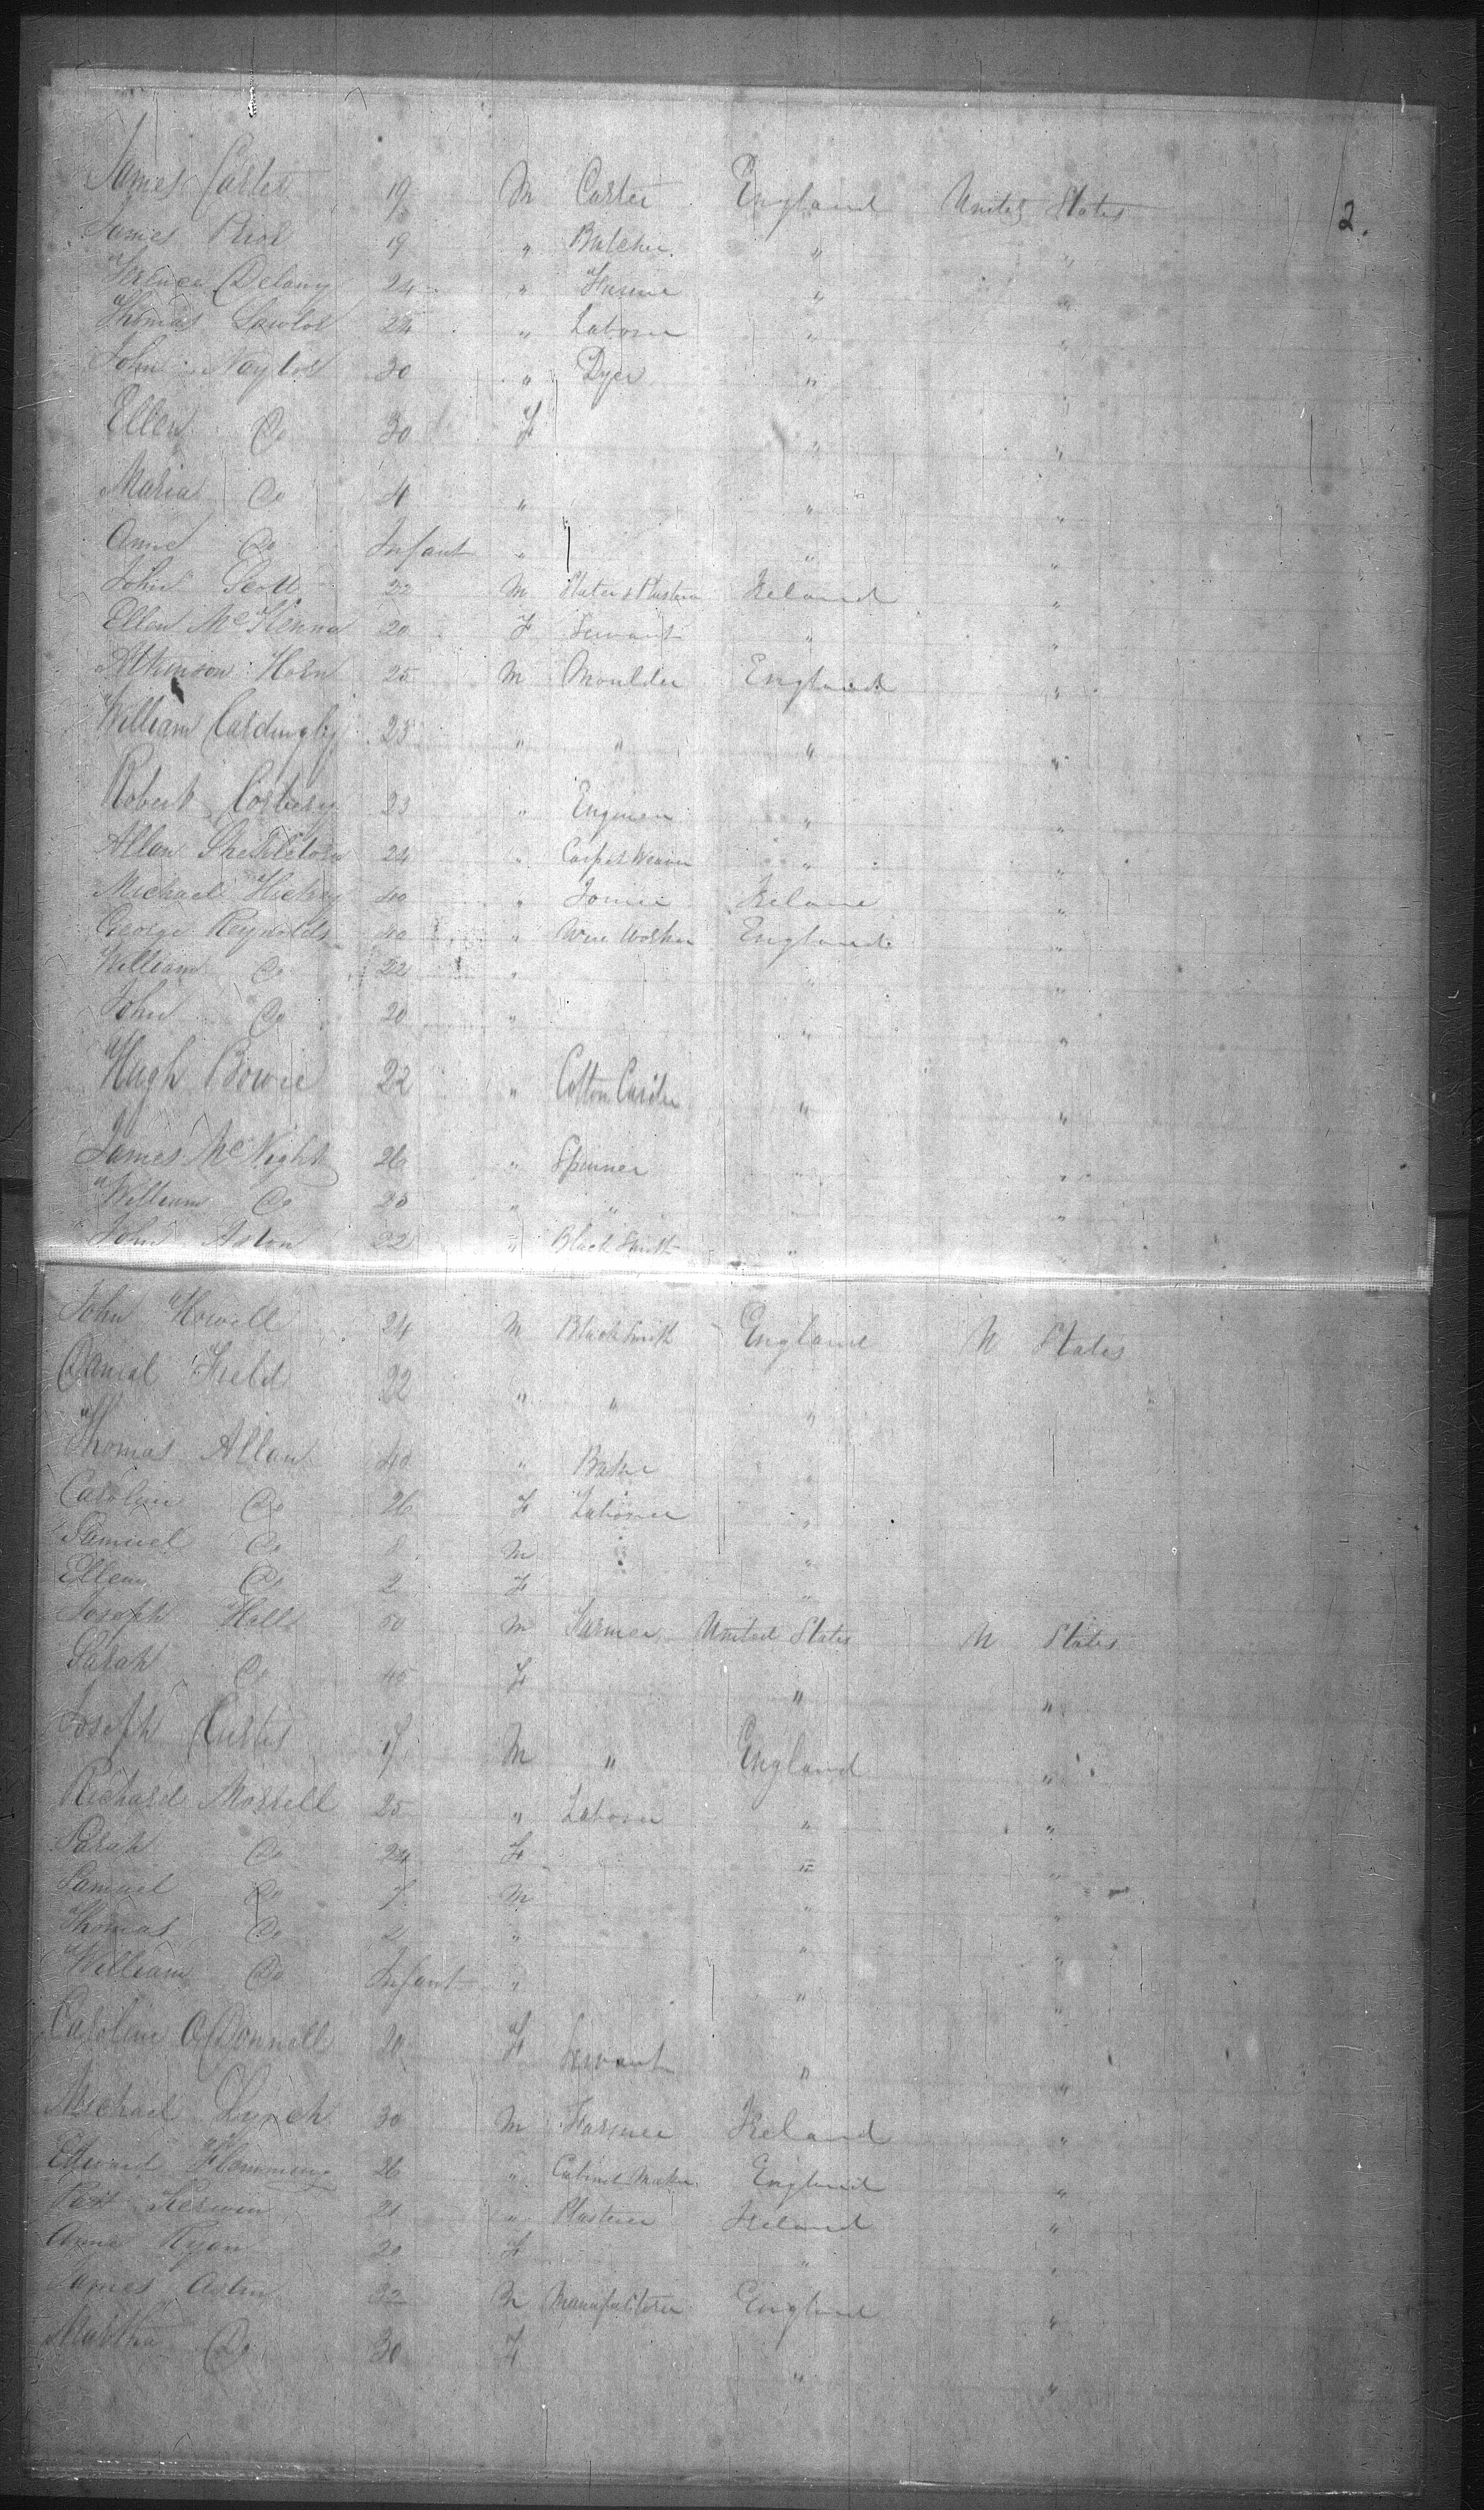 2.
James Carter 19 M Carter England United States
James Rior 19 " Butcher " "
Terence Delany 24 " Farmer " "
Thomas Lawlor 24 " Laborer " "
John Naylor 30 " Dyer " "
Ellen Do 30 F " "
Maria Do 4 " " "
Anne Do Infant " " "
John Scott 22 M Slater & Plasterer Ireland "
Ellen McKenna 20 F Servant " "
Atkinson Horn 25 M Moulder England "
William Cardingly 23 " " " "
Robert 23 " Engineer " "
Allan Shekleton 24 " Carpet Weaver " "
Michael Hickey 40 " Joiner Ireland "
George Reynolds 40 " Wire Worker England "
William Do 22 " " "
John Do 20 " " "
Hugh Bowie 22 " Cotton Carder " "
James McNight 26 " Spinner " "
William Do 25 " " " "
John Aston 22 " Black Smith "
John Howell 24 M Black Smith England U States
Daniel Field 22 " " "
Thomas Allan 40 " Baker "
Carolin Do 26 F Laborer "
Samuel Do 8 M "
Ellen Do 2 F "
Joseph Hall 50 M Farmer United States U States
Sarah Do 45 F " "
Joseph Curtis 17 M " England "
Richard Morrell 25 " Laborer " "
Sarah Do 24 F " "
Samuel Do 7 M " "
Thomas Do 2 " " "
William Do Infant " " "
Carolin O'Donnell 20 F Servant " "
Michael Lynch 30 M Farmer Ireland "
Edward Flemming 26 " Cabinet Maker England "
Patt Kerwin 21 " Plasterer Ireland "
Anne Ryan 20 F " "
James Astin 32 M Manufacturer England "
Martha Do 30 F " "